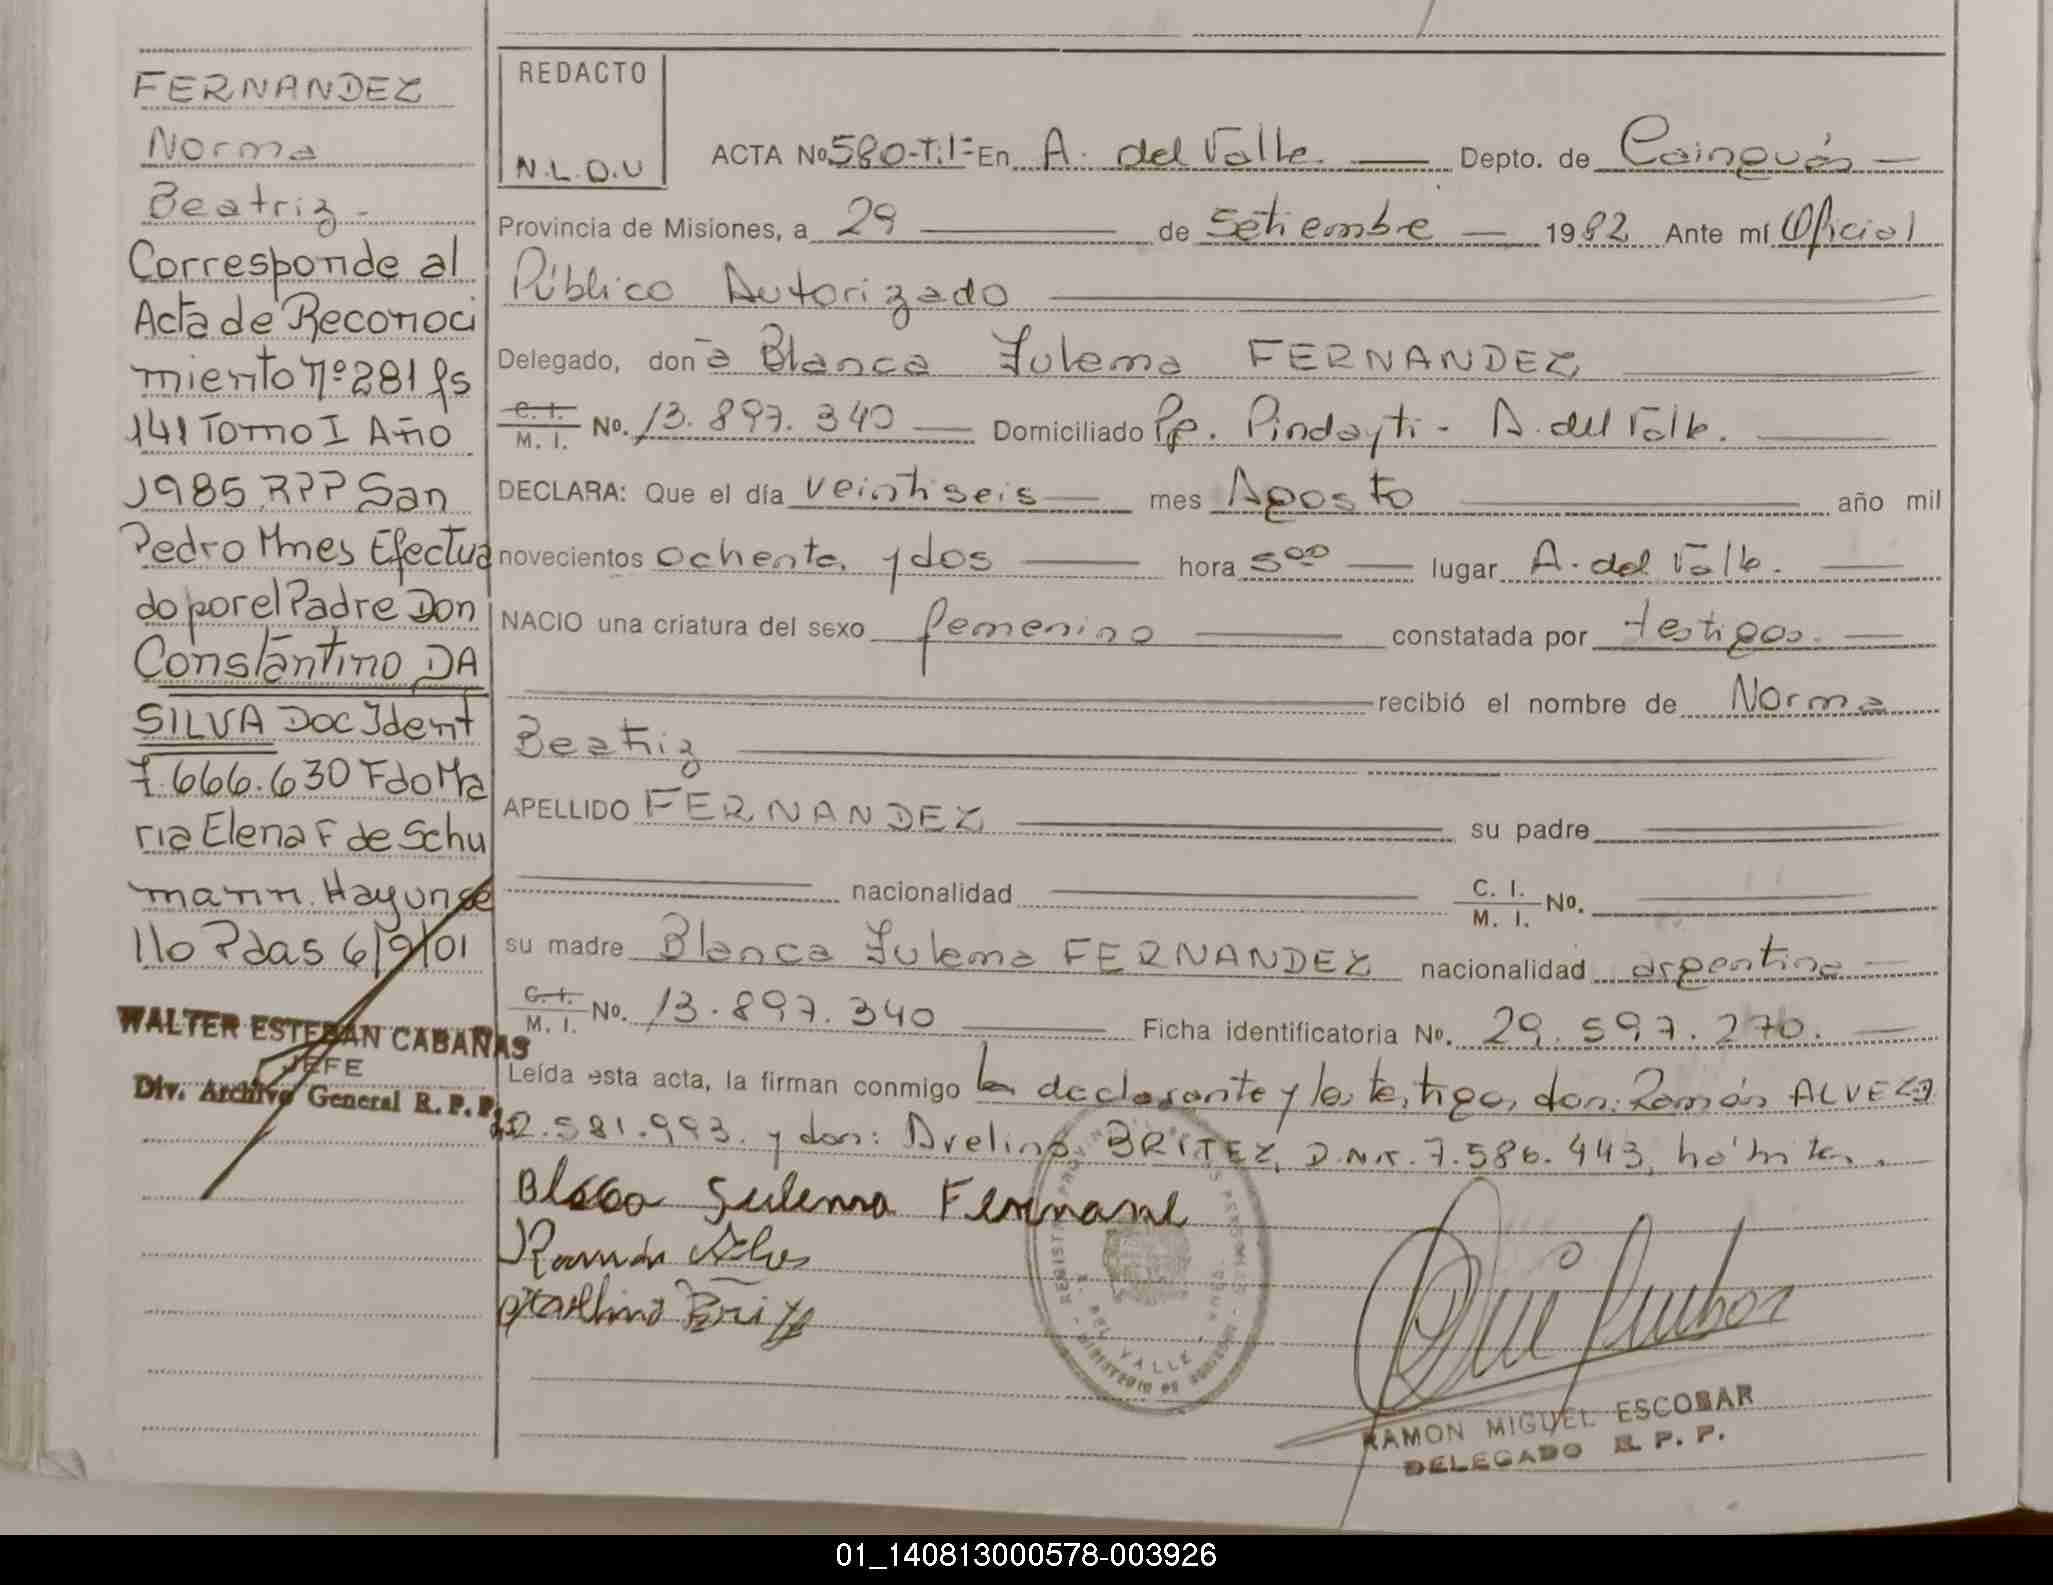 FERNANDEZ
Norma
Beatriz.-
Corresponde al
Acta de Reconoci
miento nº 281 fs
141 Tomo I Año
1985 RPP San
Pedro Mnes Efectua
do por el Padre Don
Constantino DA
SILVA Doc Ident
7.666.630 Fdo Ma
ria Elena F de Schu
mann. Hay un se
llo Pdas 6/9/01
WALTER ESTEBAN CABAÑAS
JEFE
Div. Archivo General R.P.P.
REDACTO
N.L.D.U
ACTA No 580-T.I= En A. del Valle. Depto. de Cainguás
Provincia de Misiones, a 29 de Setiembre 1982 Ante mí Oficial
Público Autorizado
Delegado, don a Blanca Zulema FERNANDEZ
C. I. / M. I. No. 13.897.340 Domiciliado Pje. Pindayti - A. del Valle.
DECLARA: Que el día veintiseis mes Agosto año mil
novecientos ochenta y dos hora 5 00 lugar A. del Valle.
NACIO una criatura del sexo femenino constatada por testigos.
recibió el nombre de Norma
Beatriz
APELLIDO FERNANDEZ su padre
nacionalidad C. I. / M. I. No.
su madre Blanca Zulema FERNANDEZ nacionalidad argentina
C. I. / M. I. No. 13.897.340 Ficha identificatoria No. 29.597.270.
Leída esta acta, la firman conmigo la declarante y los testigos, don: Ramón ALVEZ
2.581.993. y don: Avelino BRITEZ, D.N.I. 7.586.443,
Blanca Sulema Fernane
Ramón Alves
Britez
REGISTRO PROVINCIAL DE LAS PERSONAS
A. DEL VALLE
MINISTERIO DE GOBIERNO
RAMON MIGUEL ESCOBAR
DELEGADO R. P. P.
01_140813000578-003926